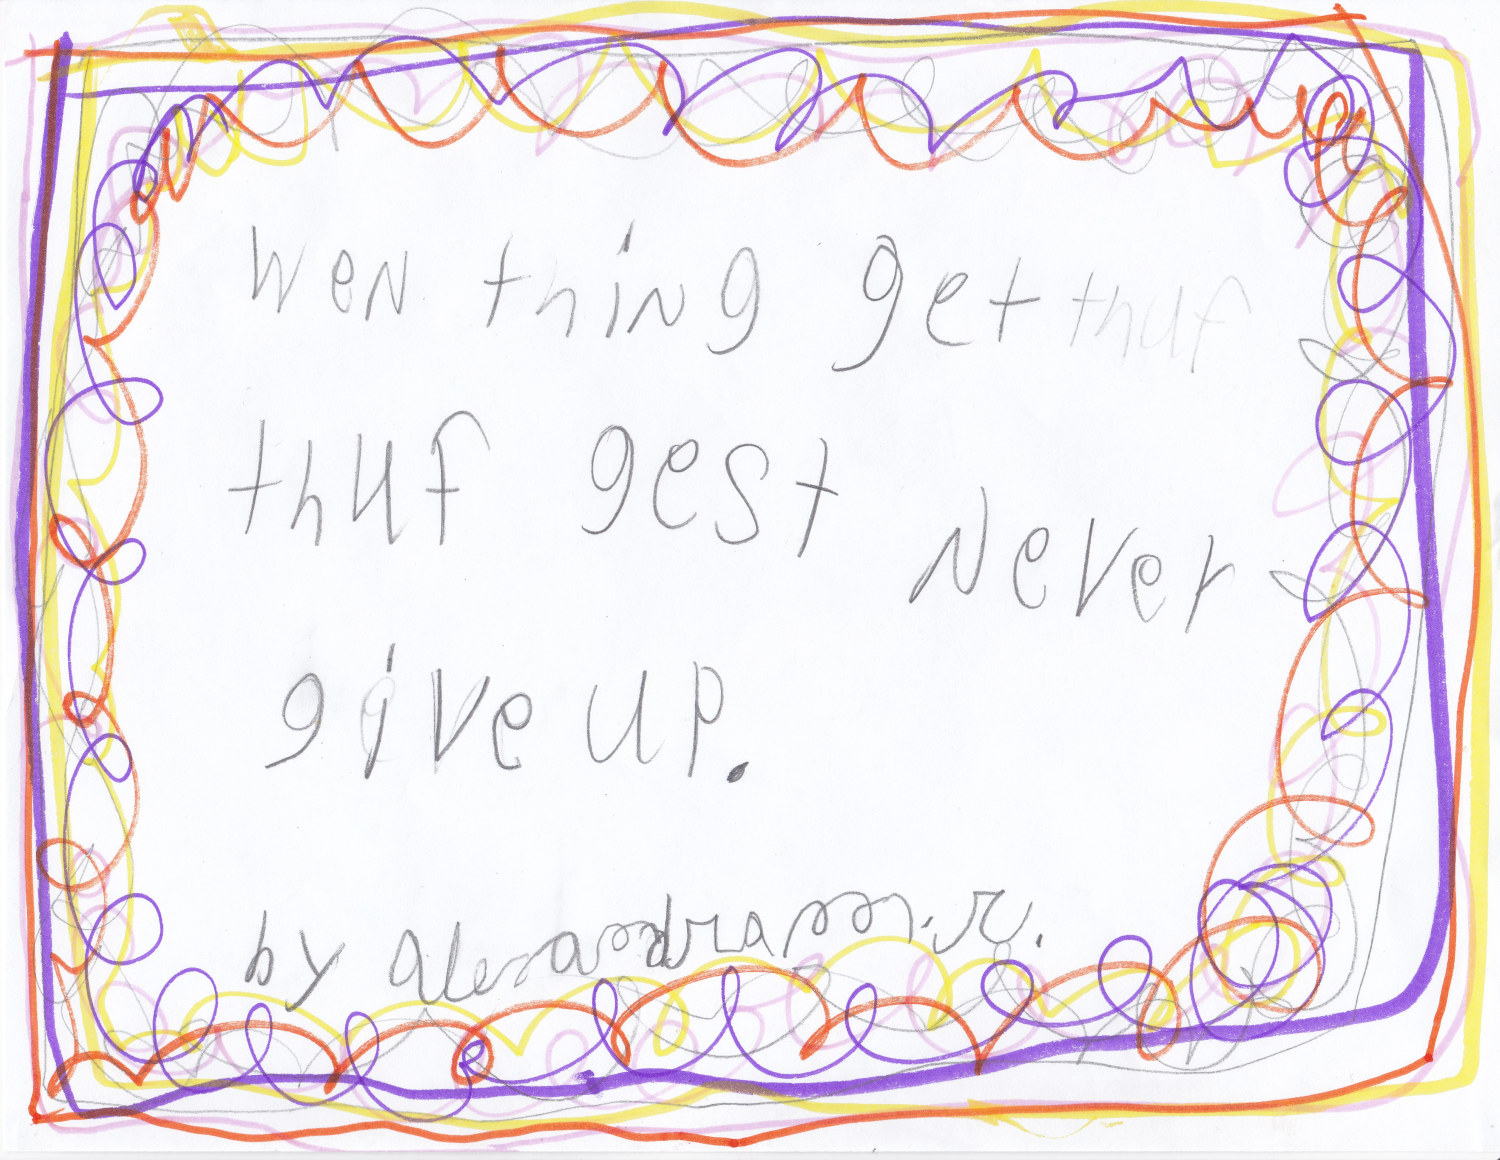 wen thing get thuf
thuf gest never
give up.
by alexandra